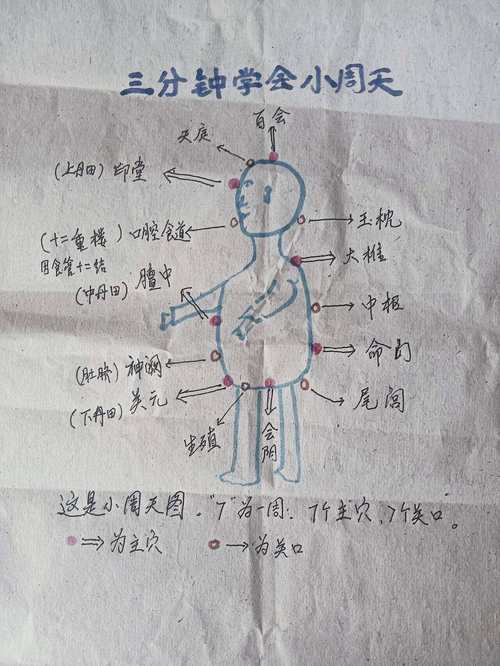 三分钟学会小周天
百会
天庭
(上丹田) 印堂
玉枕
(十二重楼) 口腔食道
用食管十二结
大椎
(中丹田) 膻中
中枢
命门
(肚脐) 神阙
(下丹田) 关元
尾闾
生殖
会阴
这是小周天图。"7"为一周：7个主穴、7个关口。
⇒为主穴 →为关口